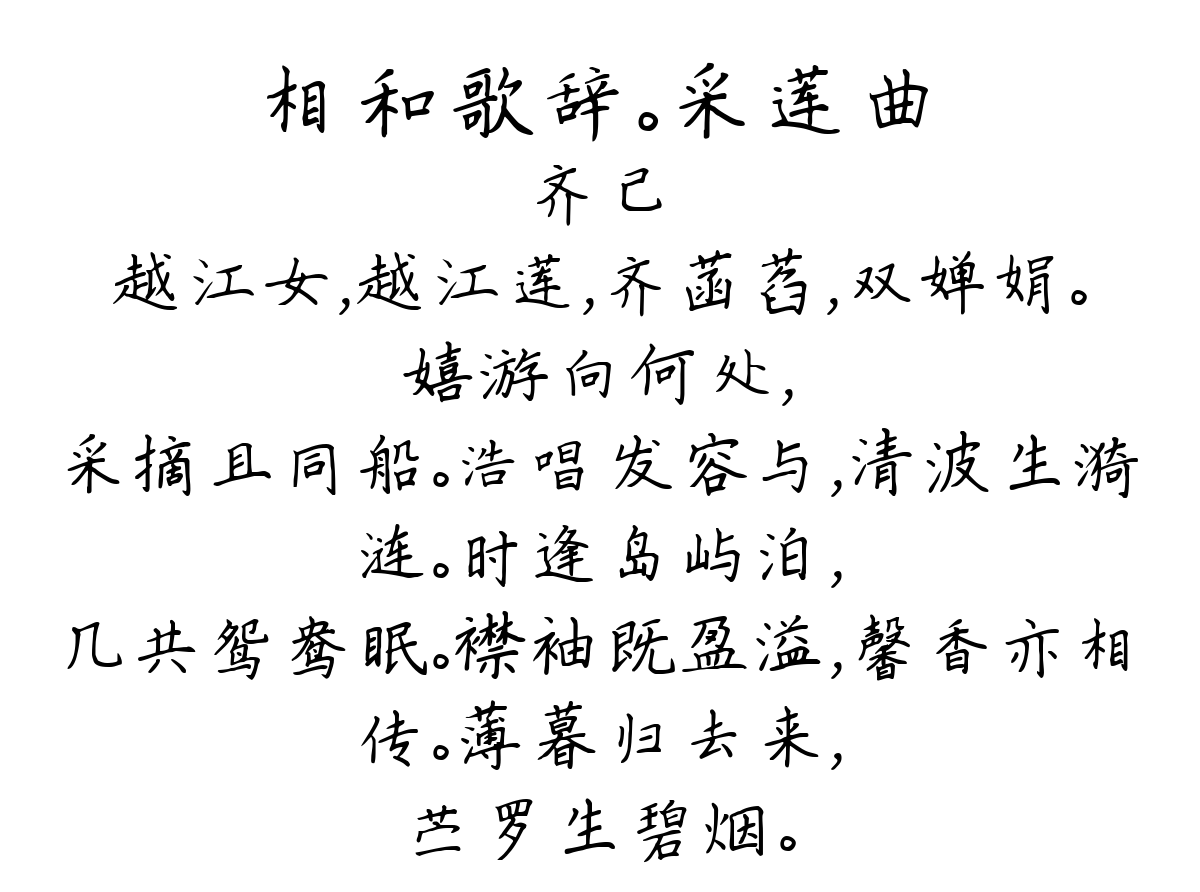 相和歌辞。采莲曲
齐己
越江女,越江莲,齐菡萏,双婵娟。
嬉游向何处,
采摘且同船。浩唱发容与,清波生漪
涟。时逢岛屿泊,
几共鸳鸯眠。襟袖既盈溢,馨香亦相
传。薄暮归去来,
苎罗生碧烟。